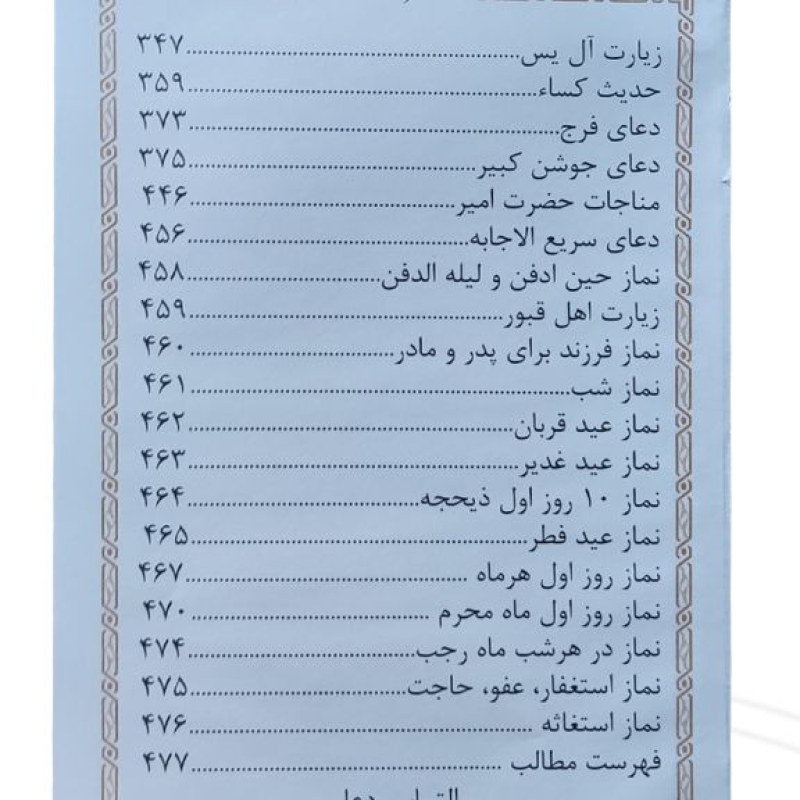 زیارت آل یس................................................۳۴۷
حدیث کساء................................................۳۵۹
دعای فرج................................................۳۷۳
دعای جوشن کبیر................................................۳۷۵
مناجات حضرت امیر................................................۴۴۶
دعای سریع الاجابه................................................۴۵۶
نماز حین ادفن و لیله الدفن................................................۴۵۸
زیارت اهل قبور................................................۴۵۹
نماز فرزند برای پدر و مادر................................................۴۶۰
نماز شب................................................۴۶۱
نماز عید قربان................................................۴۶۲
نماز عید غدیر................................................۴۶۳
نماز ۱۰ روز اول ذیحجه................................................۴۶۴
نماز عید فطر................................................۴۶۵
نماز روز اول هرماه ................................................۴۶۷
نماز روز اول ماه محرم ................................................۴۷۰
نماز در هرشب ماه رجب................................................۴۷۴
نماز استغفار، عفو، حاجت................................................۴۷۵
نماز استغاثه ................................................۴۷۶
فهرست مطالب ................................................۴۷۷